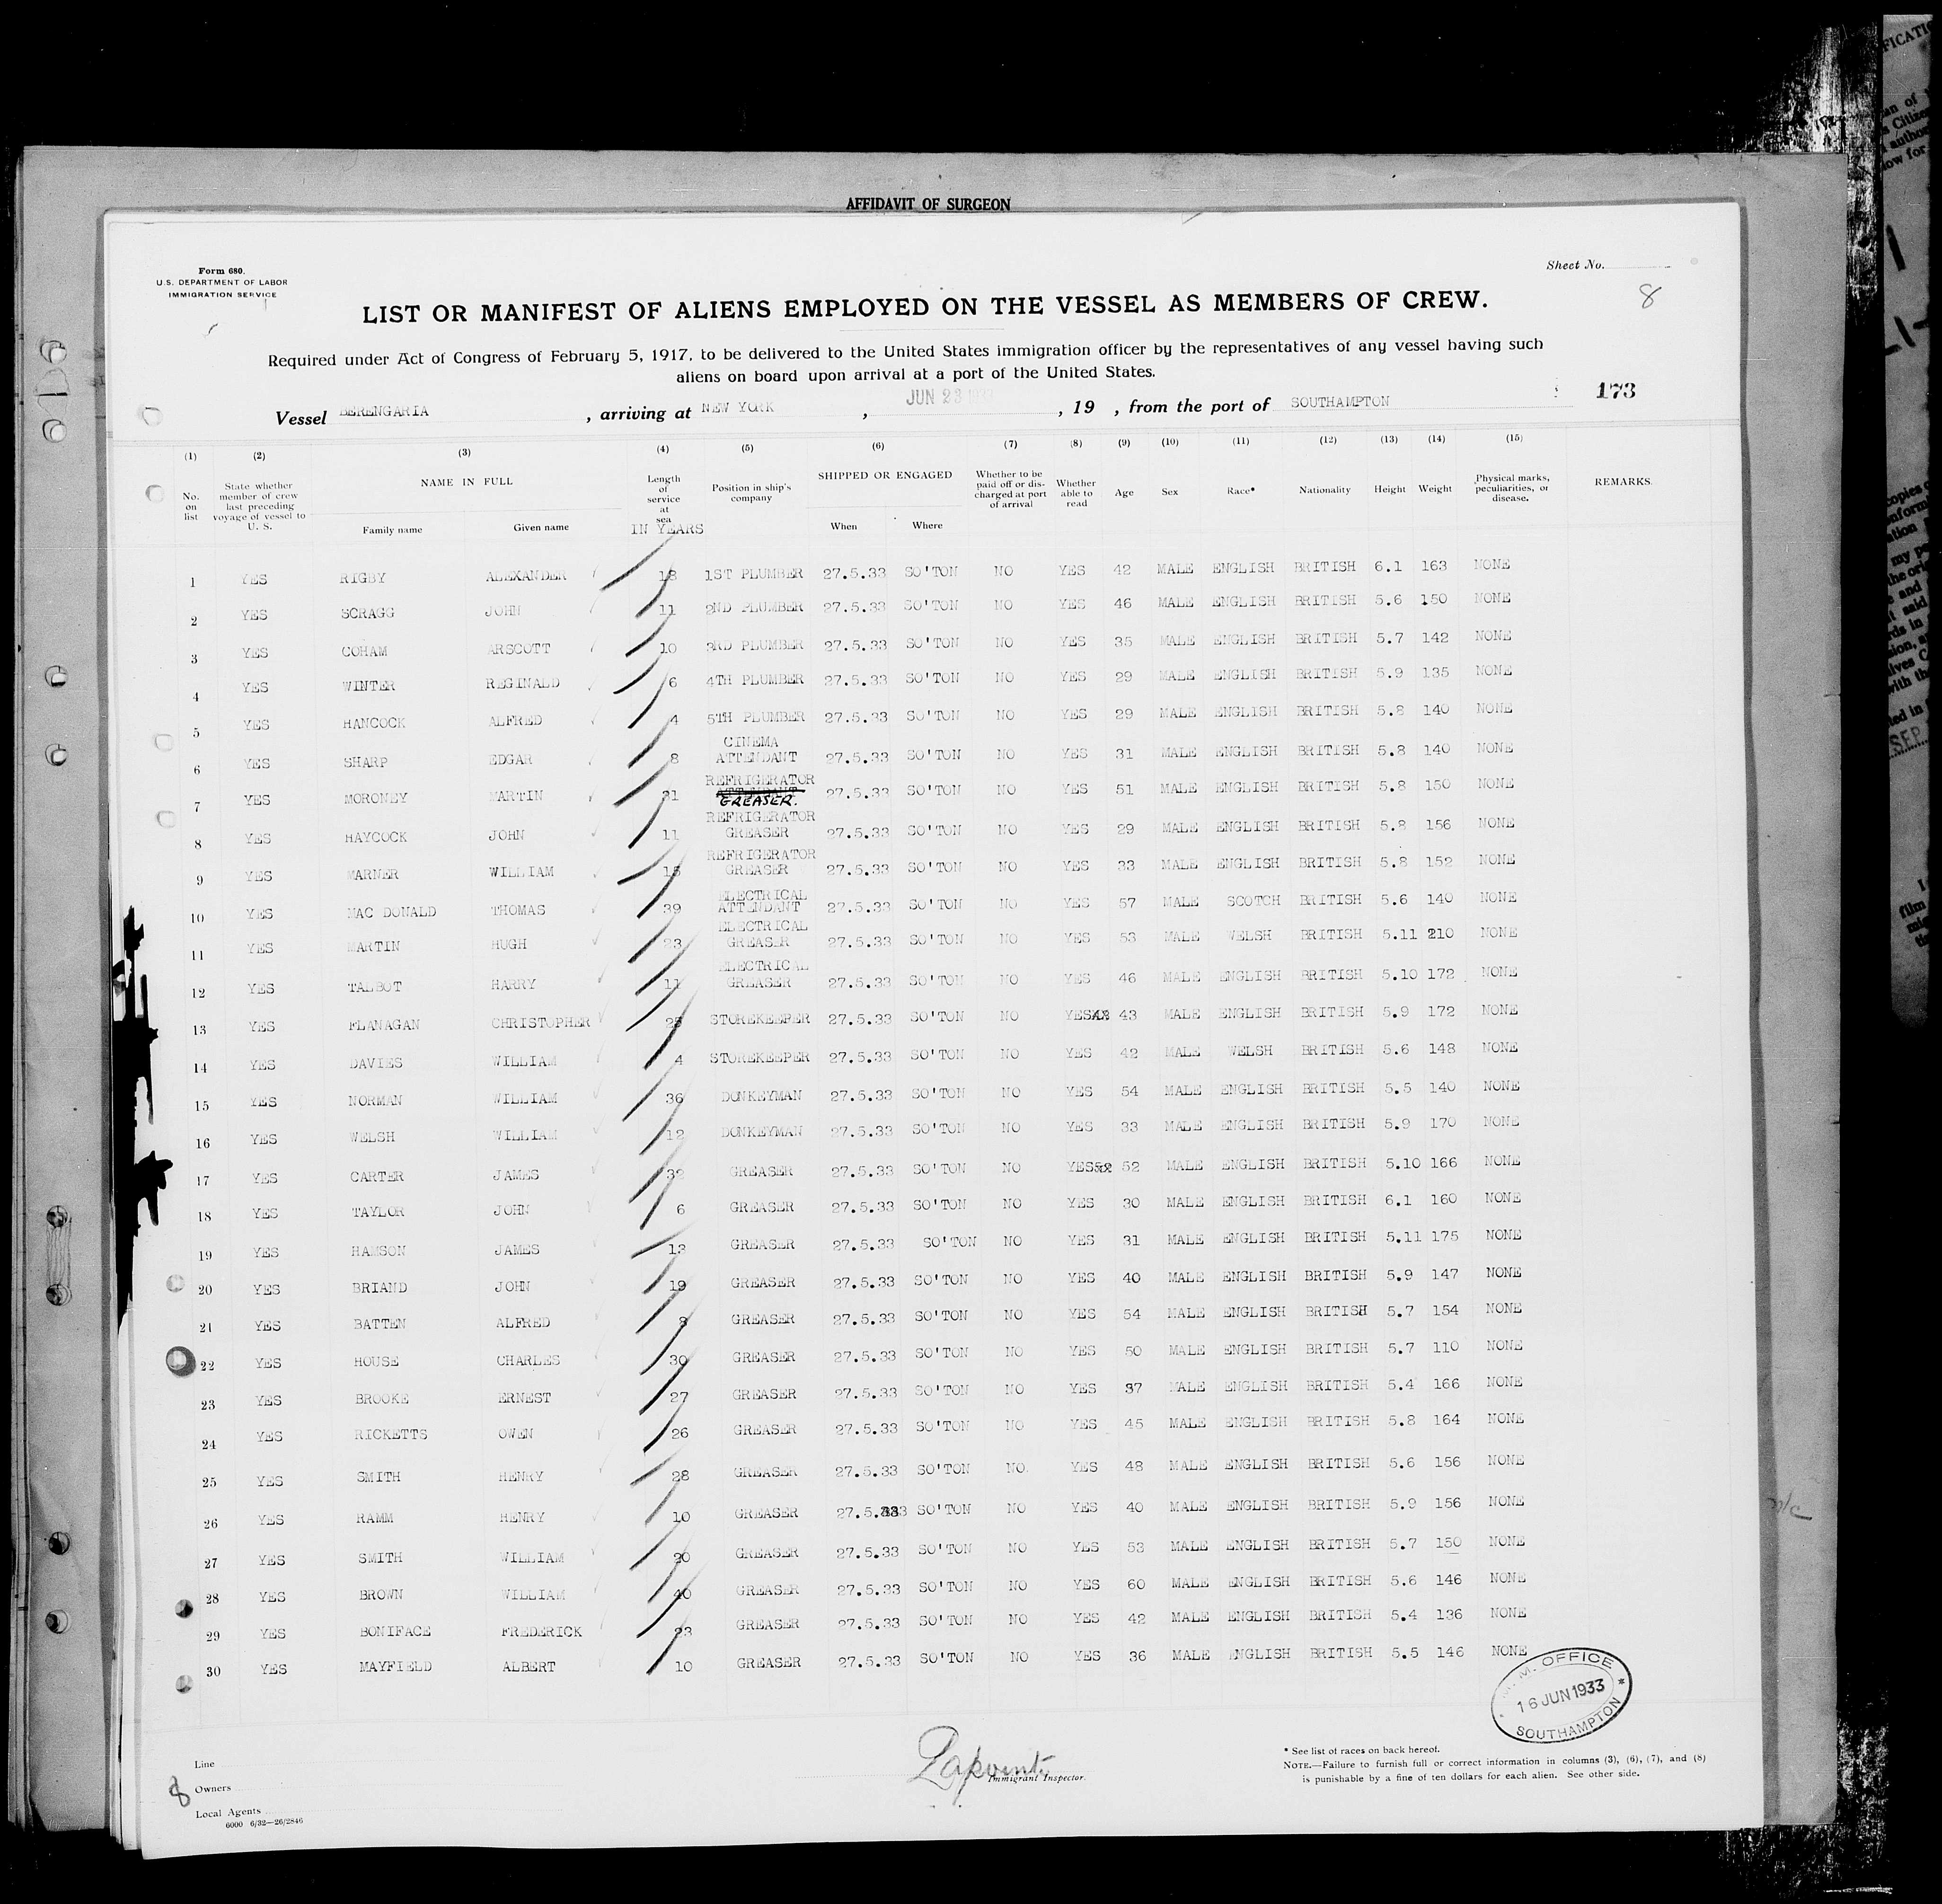 AFFIDAVIT OF SURGEON
Form 680.
U.S. DEPARTMENT OF LABOR
IMMIGRATION SERVICE
Sheet No.
8
LIST OR MANIFEST OF ALIENS EMPLOYED ON THE VESSEL AS MEMBERS OF CREW.
Required under Act of Congress of February 5, 1917, to be delivered to the United States immigration officer by the representatives of any vessel having such
aliens on board upon arrival at a port of the United States.
173
Vessel BERENGARIA, arriving at NEW YORK, JUN 23 1933, 19 , from the port of SOUTHAMPTON
(1) (2) (3) (4) (5) (6) (7) (8) (9) (10) (11) (12) (13) (14) (15)
No. on list State whether member of crew last preceding voyage of vessel to U. S. NAME IN FULL Family name Given name Length of service at sea IN YEARS Position in ship's company SHIPPED OR ENGAGED When Where Whether to be paid off or discharged at port of arrival Whether able to read Age Sex Race* Nationality Height Weight Physical marks, peculiarities, or disease. REMARKS.
1 YES RIGBY ALEXANDER 18 1ST PLUMBER 27.5.33 SO'TON NO YES 42 MALE ENGLISH BRITISH 6.1 163 NONE
2 YES SCRAGG JOHN 11 2ND PLUMBER 27.5.33 SO'TON NO YES 46 MALE ENGLISH BRITISH 5.6 150 NONE
3 YES COHAM ARSCOTT 10 3RD PLUMBER 27.5.33 SO'TON NO YES 35 MALE ENGLISH BRITISH 5.7 142 NONE
4 YES WINTER REGINALD 6 4TH PLUMBER 27.5.33 SO'TON NO YES 29 MALE ENGLISH BRITISH 5.9 135 NONE
5 YES HANCOCK ALFRED 4 5TH PLUMBER 27.5.33 SO'TON NO YES 29 MALE ENGLISH BRITISH 5.8 140 NONE
6 YES SHARP EDGAR 8 CINEMA ATTENDANT 27.5.33 SO'TON NO YES 31 MALE ENGLISH BRITISH 5.8 140 NONE
7 YES MORONEY MARTIN 31 REFRIGERATOR ATTENDANT GREASER. 27.5.33 SO'TON NO YES 51 MALE ENGLISH BRITISH 5.8 150 NONE
8 YES HAYCOCK JOHN 11 REFRIGERATOR GREASER 27.5.33 SO'TON NO YES 29 MALE ENGLISH BRITISH 5.8 156 NONE
9 YES WARNER WILLIAM 15 REFRIGERATOR GREASER 27.5.33 SO'TON NO YES 33 MALE ENGLISH BRITISH 5.8 152 NONE
10 YES MAC DONALD THOMAS 39 ELECTRICAL ATTENDANT 27.5.33 SO'TON NO YES 57 MALE SCOTCH BRITISH 5.6 140 NONE
11 YES MARTIN HUGH 23 ELECTRICAL GREASER 27.5.33 SO'TON NO YES 53 MALE WELSH BRITISH 5.11 210 NONE
12 YES TALBOT HARRY 11 ELECTRICAL GREASER 27.5.33 SO'TON NO YES 46 MALE ENGLISH BRITISH 5.10 172 NONE
13 YES FLANAGAN CHRISTOPHER 25 STOREKEEPER 27.5.33 SO'TON NO YES 43 MALE ENGLISH BRITISH 5.9 172 NONE
14 YES DAVIES WILLIAM 4 STOREKEEPER 27.5.33 SO'TON NO YES 42 MALE WELSH BRITISH 5.6 148 NONE
15 YES NORMAN WILLIAM 36 DONKEYMAN 27.5.33 SO'TON NO YES 54 MALE ENGLISH BRITISH 5.5 140 NONE
16 YES WELSH WILLIAM 12 DONKEYMAN 27.5.33 SO'TON NO YES 33 MALE ENGLISH BRITISH 5.9 170 NONE
17 YES CARTER JAMES 32 GREASER 27.5.33 SO'TON NO YES 52 MALE ENGLISH BRITISH 5.10 166 NONE
18 YES TAYLOR JOHN 6 GREASER 27.5.33 SO'TON NO YES 30 MALE ENGLISH BRITISH 6.1 160 NONE
19 YES HAMSON JAMES 13 GREASER 27.5.33 SO'TON NO YES 31 MALE ENGLISH BRITISH 5.11 175 NONE
20 YES BRIAND JOHN 19 GREASER 27.5.33 SO'TON NO YES 40 MALE ENGLISH BRITISH 5.9 147 NONE
21 YES BATTEN ALFRED 8 GREASER 27.5.33 SO'TON NO YES 54 MALE ENGLISH BRITISH 5.7 154 NONE
22 YES HOUSE CHARLES 30 GREASER 27.5.33 SO'TON NO YES 50 MALE ENGLISH BRITISH 5.7 110 NONE
23 YES BROOKE ERNEST 27 GREASER 27.5.33 SO'TON NO YES 37 MALE ENGLISH BRITISH 5.4 166 NONE
24 YES RICKETTS OWEN 26 GREASER 27.5.33 SO'TON NO YES 45 MALE ENGLISH BRITISH 5.8 164 NONE
25 YES SMITH HENRY 28 GREASER 27.5.33 SO'TON NO. YES 48 MALE ENGLISH BRITISH 5.6 156 NONE
26 YES RAMM HENRY 10 GREASER 27.5.33 SO'TON NO YES 40 MALE ENGLISH BRITISH 5.9 156 NONE
27 YES SMITH WILLIAM 20 GREASER 27.5.33 SO'TON NO YES 53 MALE ENGLISH BRITISH 5.7 150 NONE
28 YES BROWN WILLIAM 40 GREASER 27.5.33 SO'TON NO YES 60 MALE ENGLISH BRITISH 5.6 146 NONE
29 YES BONIFACE FREDERICK 23 GREASER 27.5.33 SO'TON NO YES 42 MALE ENGLISH BRITISH 5.4 136 NONE
30 YES MAYFIELD ALBERT 10 GREASER 27.5.33 SO'TON NO YES 36 MALE ENGLISH BRITISH 5.5 146 NONE
M.M. OFFICE
16 JUN 1933
SOUTHAMPTON
Line
Owners
Local Agents
6000 6/32—26/2846
8
Lapointe
Immigrant Inspector.
* See list of races on back hereof.
NOTE.—Failure to furnish full or correct information in columns (3), (6), (7), and (8)
is punishable by a fine of ten dollars for each alien. See other side.